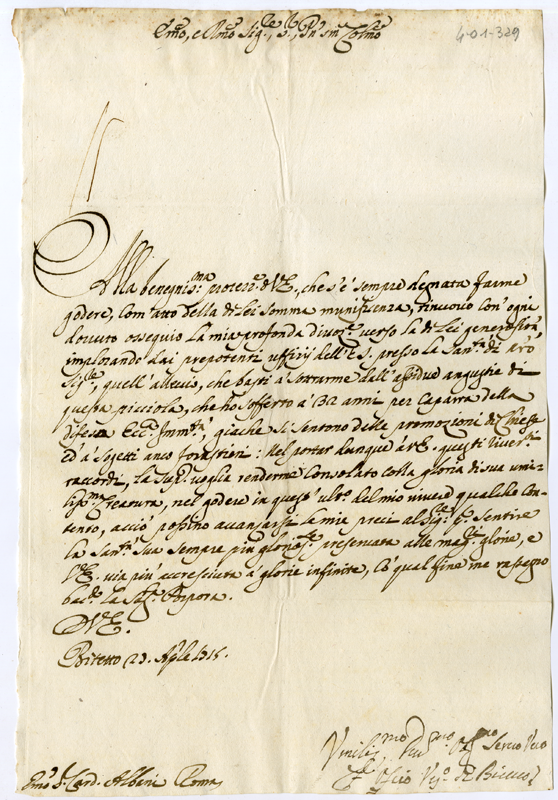 Em̃o, e Rm̃o Sig.re, S.r, Pn̄ sm̃ Colmo
4-01-329
Alla benegnis.ma protez.e d'V.E., che s'è sempre degnata farme
godere, com'atto della di Lei somma munificenza, rinuovo con' ogni
dovuto ossequio la mia profonda divoz.e verso la di Lei
implorando dai prepotenti uffizij dell' E.S. presso la San.tà di n'ro
Sig.re, quell'allevio, che basti à sottrarme dall' assidue angustie di
questa picciola, che hò sofferto a' 32 anni per caparra della
difesa Ecc.ca Imm.tà, giache si sentono delle promozioni di Chiese
ed' à sogetti anco forastieri: Nel portar dunque à V.E. questi river.ti
raccordi, la sup.co voglia rendermi consolato colla gloria di sua umi-
liss.ma Creatura, nel godere in quest' ult.o del mio vivere qualche con-
tento, acciò possino avanzarsi le mie preci al Sig.re p. sentire
la San.tà Sua sempre più glorios.te preservata alle mag.ri glorie, e
l'V.E. via più accresciuta à glorie infinite, Cò qual fine me rassegno
bac.do la Sag.ra Porpora.
D'V.E.
Bitetto 23. Ap'le 1715.
Umiliss.mo Dev.mo Servo Vero
Vesc.o di Bitetto
Em̃o S.r Card. Albani Roma